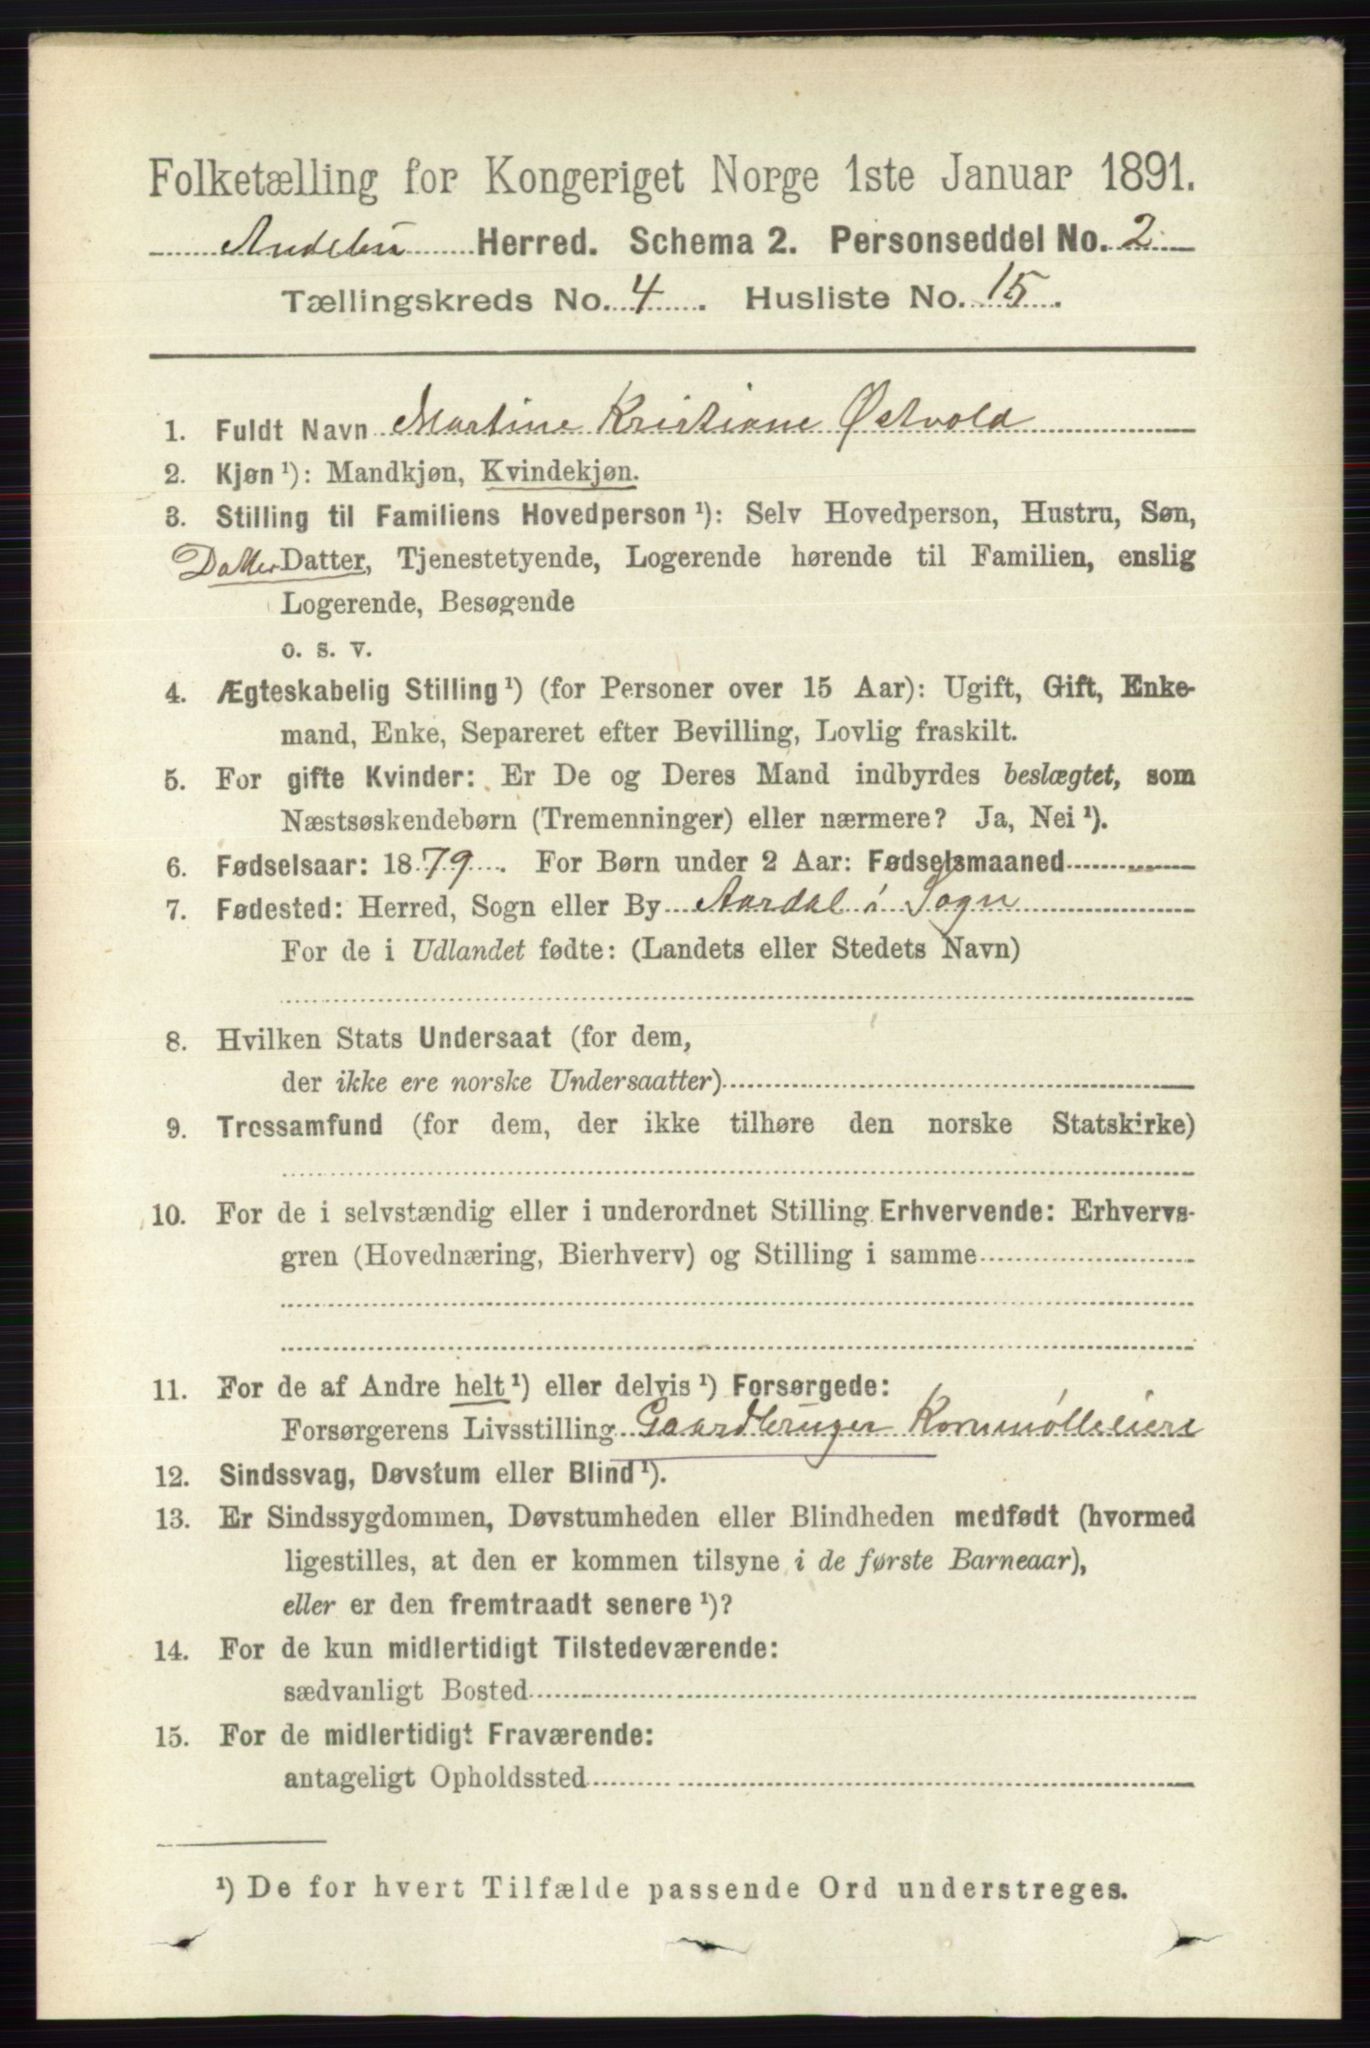 Folketælling for Kongeriget Norge 1ste Januar 1891.
Andebu Herred. Schema 2. Personseddel No. 2
Tællingskreds No. 4. Husliste No. 15.
1. Fuldt Navn Martine Kristiane Østvold
2. Kjøn ¹): Mandkjøn, Kvindekjøn.
3. Stilling til Familiens Hovedperson ¹): Selv Hovedperson, Hustru, Søn,
Datter Datter, Tjenestetyende, Logerende hørende til Familien, enslig
Logerende, Besøgende
o. s. v.
4. Ægteskabelig Stilling ¹) (for Personer over 15 Aar): Ugift, Gift, Enke-
mand, Enke, Separeret efter Bevilling, Lovlig fraskilt.
5. For gifte Kvinder: Er De og Deres Mand indbyrdes beslægtet, som
Næstsøskendebørn (Tremenninger) eller nærmere? Ja, Nei ¹).
6. Fødselsaar: 1879. For Børn under 2 Aar: Fødselsmaaned
7. Fødested: Herred, Sogn eller By Aardal i Sogn
For de i Udlandet fødte: (Landets eller Stedets Navn)
8. Hvilken Stats Undersaat (for dem,
der ikke ere norske Undersaatter)
9. Trossamfund (for dem, der ikke tilhøre den norske Statskirke)
10. For de i selvstændig eller i underordnet Stilling Erhvervende: Erhvervs-
gren (Hovednæring, Bierhverv) og Stilling i samme
11. For de af Andre helt ¹) eller delvis ¹) Forsørgede:
Forsørgerens Livsstilling Gaardbruger Kornmølleiere
12. Sindssvag, Døvstum eller Blind ¹).
13. Er Sindssygdommen, Døvstumheden eller Blindheden medfødt (hvormed
ligestilles, at den er kommen tilsyne i de første Barneaar),
eller er den fremtraadt senere ¹)?
14. For de kun midlertidigt Tilstedeværende:
sædvanligt Bosted
15. For de midlertidigt Fraværende:
antageligt Opholdssted
¹) De for hvert Tilfælde passende Ord understreges.